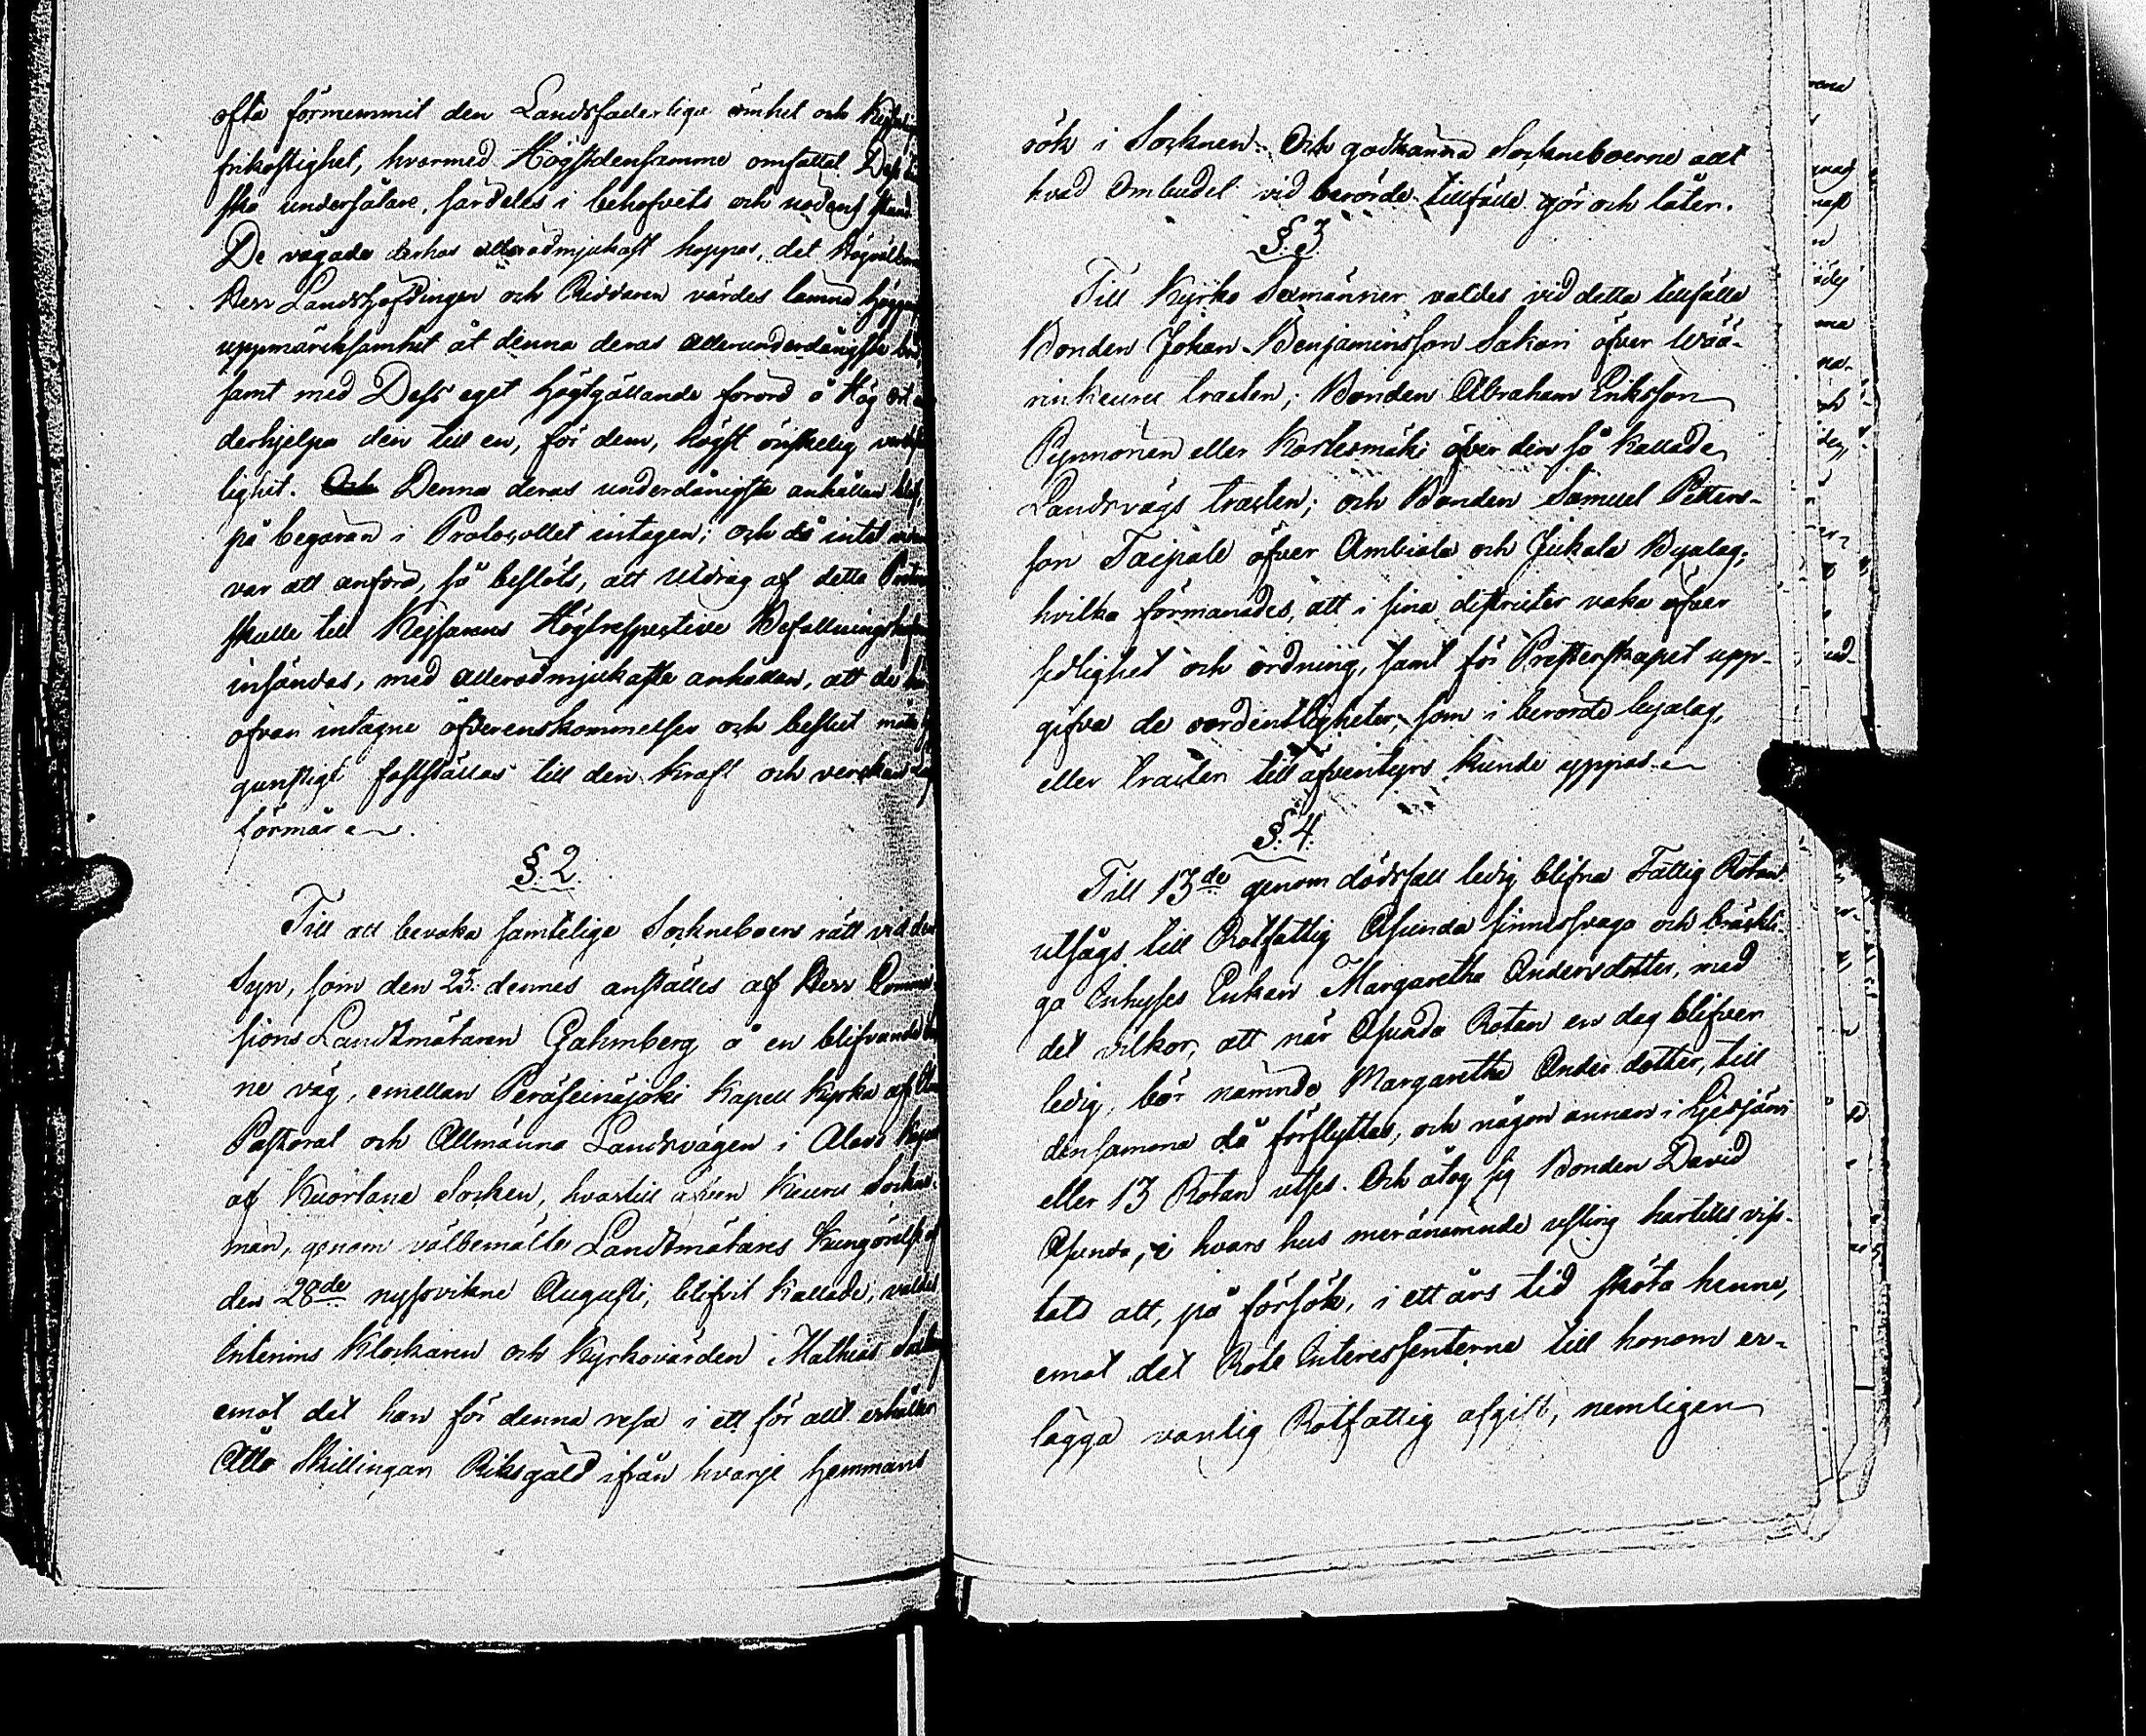 ofta förnummit den Landsfaderliga ömhet och
frikostighet, hvarmed Högstdensamme omfattat Dess
ska undersåtare, särdeles i behofvets och nödens stund.
De vågade derhos allerödmjukast hoppas, det Högvälborne
Herr Landshöfdingen och Riddaren värdes lemna
uppmärksamhet åt denna deras allerunderdånigste
samt med Dess eget högtgällande förord å Hög ort
derhjelpa den till en, för dem, högst önskelig
lighet. Denna deras underdånigste anhållan blef
på begäran i Protocollet intagen; och då intet
var att anföra, så beslöts, att Utdrag af detta
skulle till Kejsarens Högtrespective Befallningshafvande
insändas, med allerödmjukaste anhållan, att de
ofvan intagne öfverenskommelser och beslut måtte
gunstigt fastställas till den kraft och verkan
förmår
§. 2.
Till att bevaka samtelige Sockneboers rätt vid den
Syn, som den 25. dennes anställes af Herr Commis-
sions Landtmätaren Gahmberg å en blifvande
ne väg, emellan Peräseinäjoki Kapell Kyrka af
Pastorat och Allmänna Landsvägen i Alavo
af Kuortane Socken, hvartill äfven Keuru Sockne-
män, genom välbemälte Landtmätares Kungörelse af
den 28de nyssvikne Augusti, blifvit kallade, valdes
Interims Klockaren och Kyrkovärden Mathias
emot det han för denna resa i ett för allt erhåller
Åtta Skillingar Riksgäld ifrån hvarje Hemmans
rök i Socknen. Och godkänna Sockneboerne allt
hvad Ombudet vid berörde tillfälle gör och låter.
§. 3.
Till Kyrko Sexmänner valdes vid detta tillfälle
Bonden Johan Benjaminsson Sakari öfver Wää-
rinkeuru tracten; Bonden Abraham Eriksson
Pynnönen eller Kortesmäki öfver den så kallade
Landsvägs tracten; och Bonden Samuel Petters-
son Taipale öfver Ambiala och Jukala Byalag;
hvilka förmanades, att i sina districter vaka öfver
sedlighet och ordning, samt för Presterskapet upp-
gifva de oordentligheter, som i berörde byalag,
eller tracter till äfventyrs kunde yppas.
§. 4.
Till 13de genom dödsfall ledig blifna Fattig Rotan
utsågs till Rotfattig Asunda sinnessvaga och bräckli-
ga Inhyses Enkan Margaretha Andersdotter, med
det vilkor, att när Asunda Rotan en dag blifver
ledig, bör nämnde Margaretha Anders dotter, till
densamma då förflyttas, och någon annan i Liesjärvi
eller 13 Rotan utses. Och åtog sig Bonden David
Asunda, i hvars hus meranämnde usling härtills vis-
tats att, på försök, i ett års tid sköta henne,
emot det Rote Interessenterne till honom er-
lägga vanlig Rotfattig afgift, nemligen